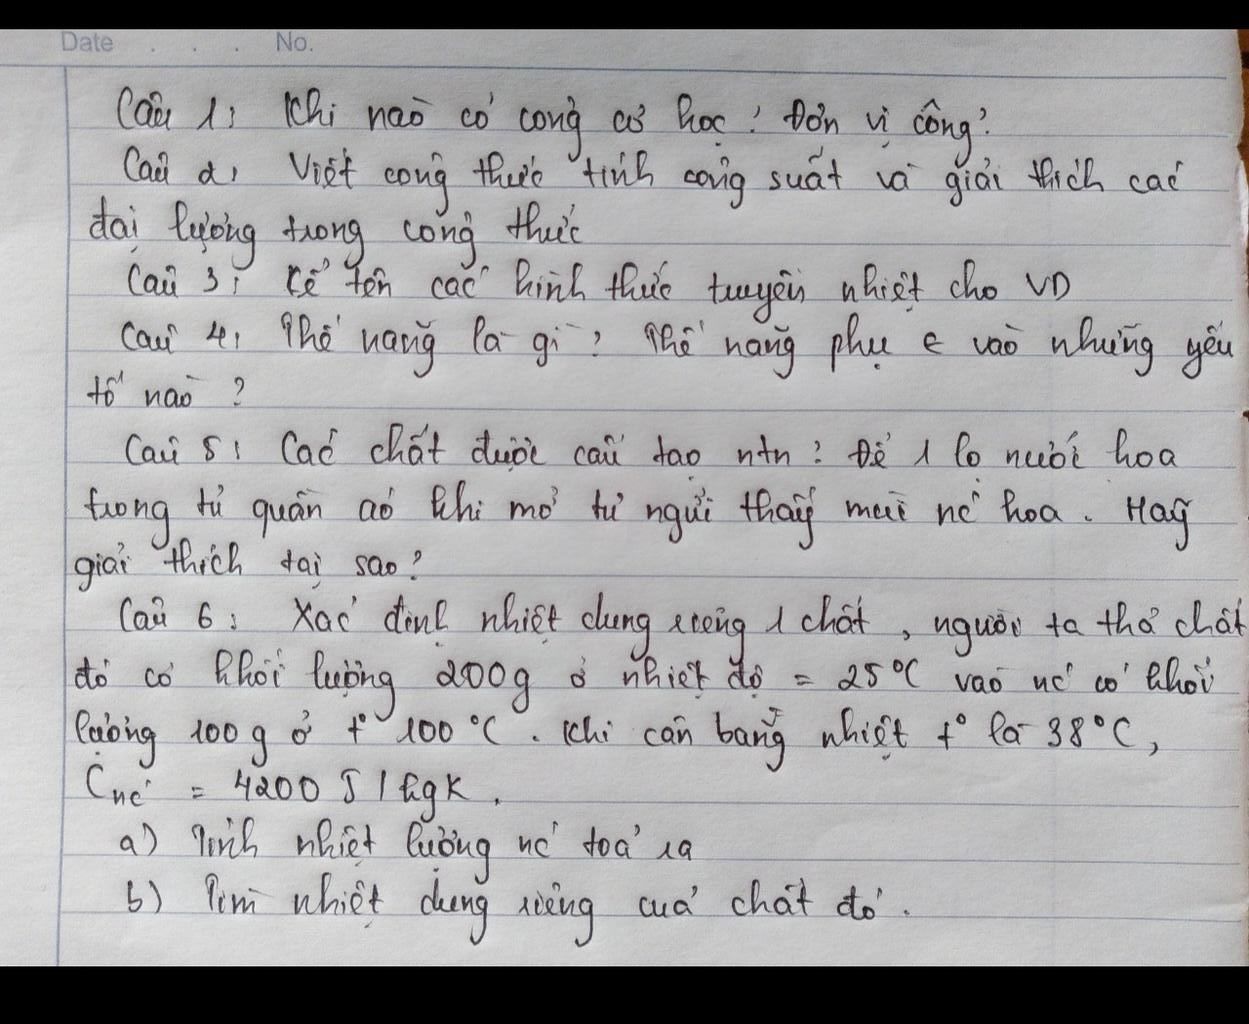 Date . . . No.
Câu 1: Khi nào có công cơ học? Đơn vị công?
Câu 2: Viết công thức tính công suất và giải thích các
đại lượng trong công thức
Câu 3: Kể tên các hình thức truyền nhiệt cho VD
Câu 4: Thế năng là gì? Thế năng phụ € vào những yếu
tố nào?
Câu 5: Các chất được cấu tạo ntn? Để 1 lọ nước hoa
trong tủ quần áo khi mở tủ ngửi thấy mùi nc hoa. Hãy
giải thích tại sao?
Câu 6: Xác định nhiệt dung riêng 1 chất, người ta thả chất
đó có khối lượng 200g ở nhiệt độ = 25°C vào nc có khối
lượng 100g ở t° 100°C. Khi cân bằng nhiệt t° là 38°C,
Cnc = 4200 J/kgK.
a) Tính nhiệt lượng nc toả ra
b) Tìm nhiệt dung riêng của chất đó.